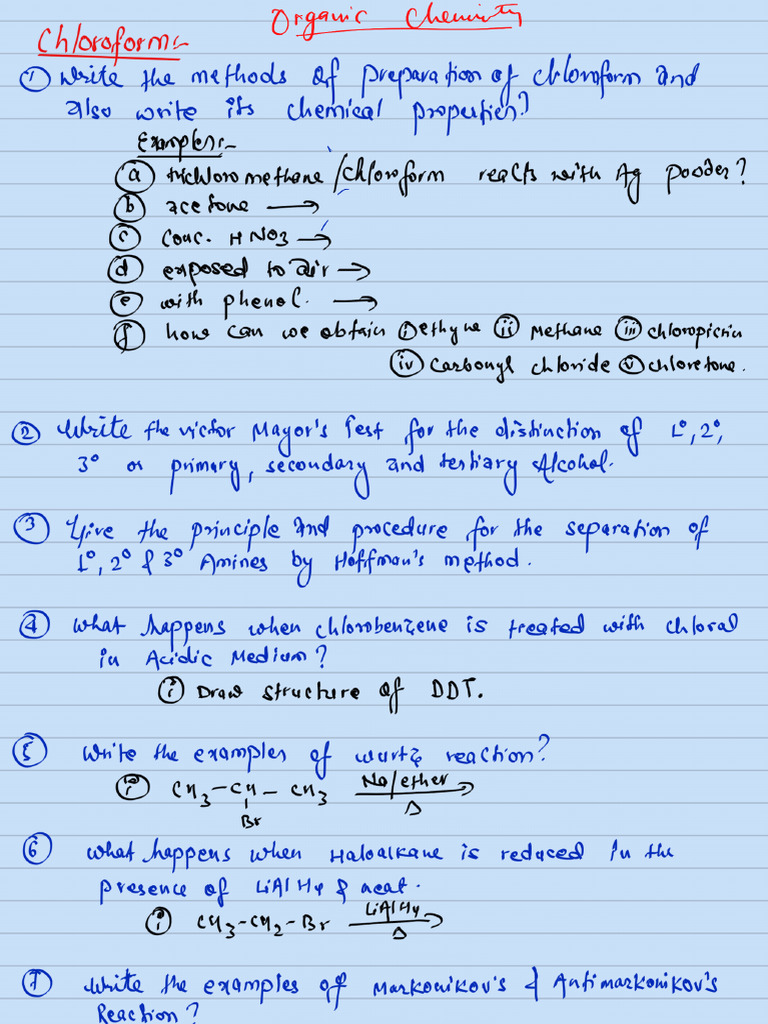 Organic Chemistry
Chloroform:-
① Write the methods of preparation of chloroform and
also write its chemical properties?
Examples:-
ⓐ trichloromethane/chloroform reacts with Ag pooder?
ⓑ acetone →
ⓒ conc. HNO3 →
ⓓ exposed to air →
ⓔ with phenol. →
ⓕ how can we obtain ⓘ ethyne ⓘⓘ Methane ⓘⓘⓘ chloropicrin
ⓘⓥ Carbonyl chloride ⓥ chloretone.
② Write the victor Mayor's Test for the distinction of 1°, 2°,
3° or primary, secondary and tertiary Alcohol.
③ Give the principle and procedure for the separation of
1°, 2° & 3° Amines by Hoffman's method.
④ What happens when chlorobenzene is treated with chloral
in Acidic Medium?
ⓘ Draw structure of DDT.
⑤ Write the examples of wurtz reaction?
ⓘ CH3-CH-CH3 Na/ether →
Br Δ
⑥ what happens when Haloalkane is reduced in the
presence of LiAlH4 & heat.
ⓘ CH3-CH2-Br LiAlH4 →
Δ
⑦ Write the examples of Markonikov's & Antimarkonikov's
Reaction?